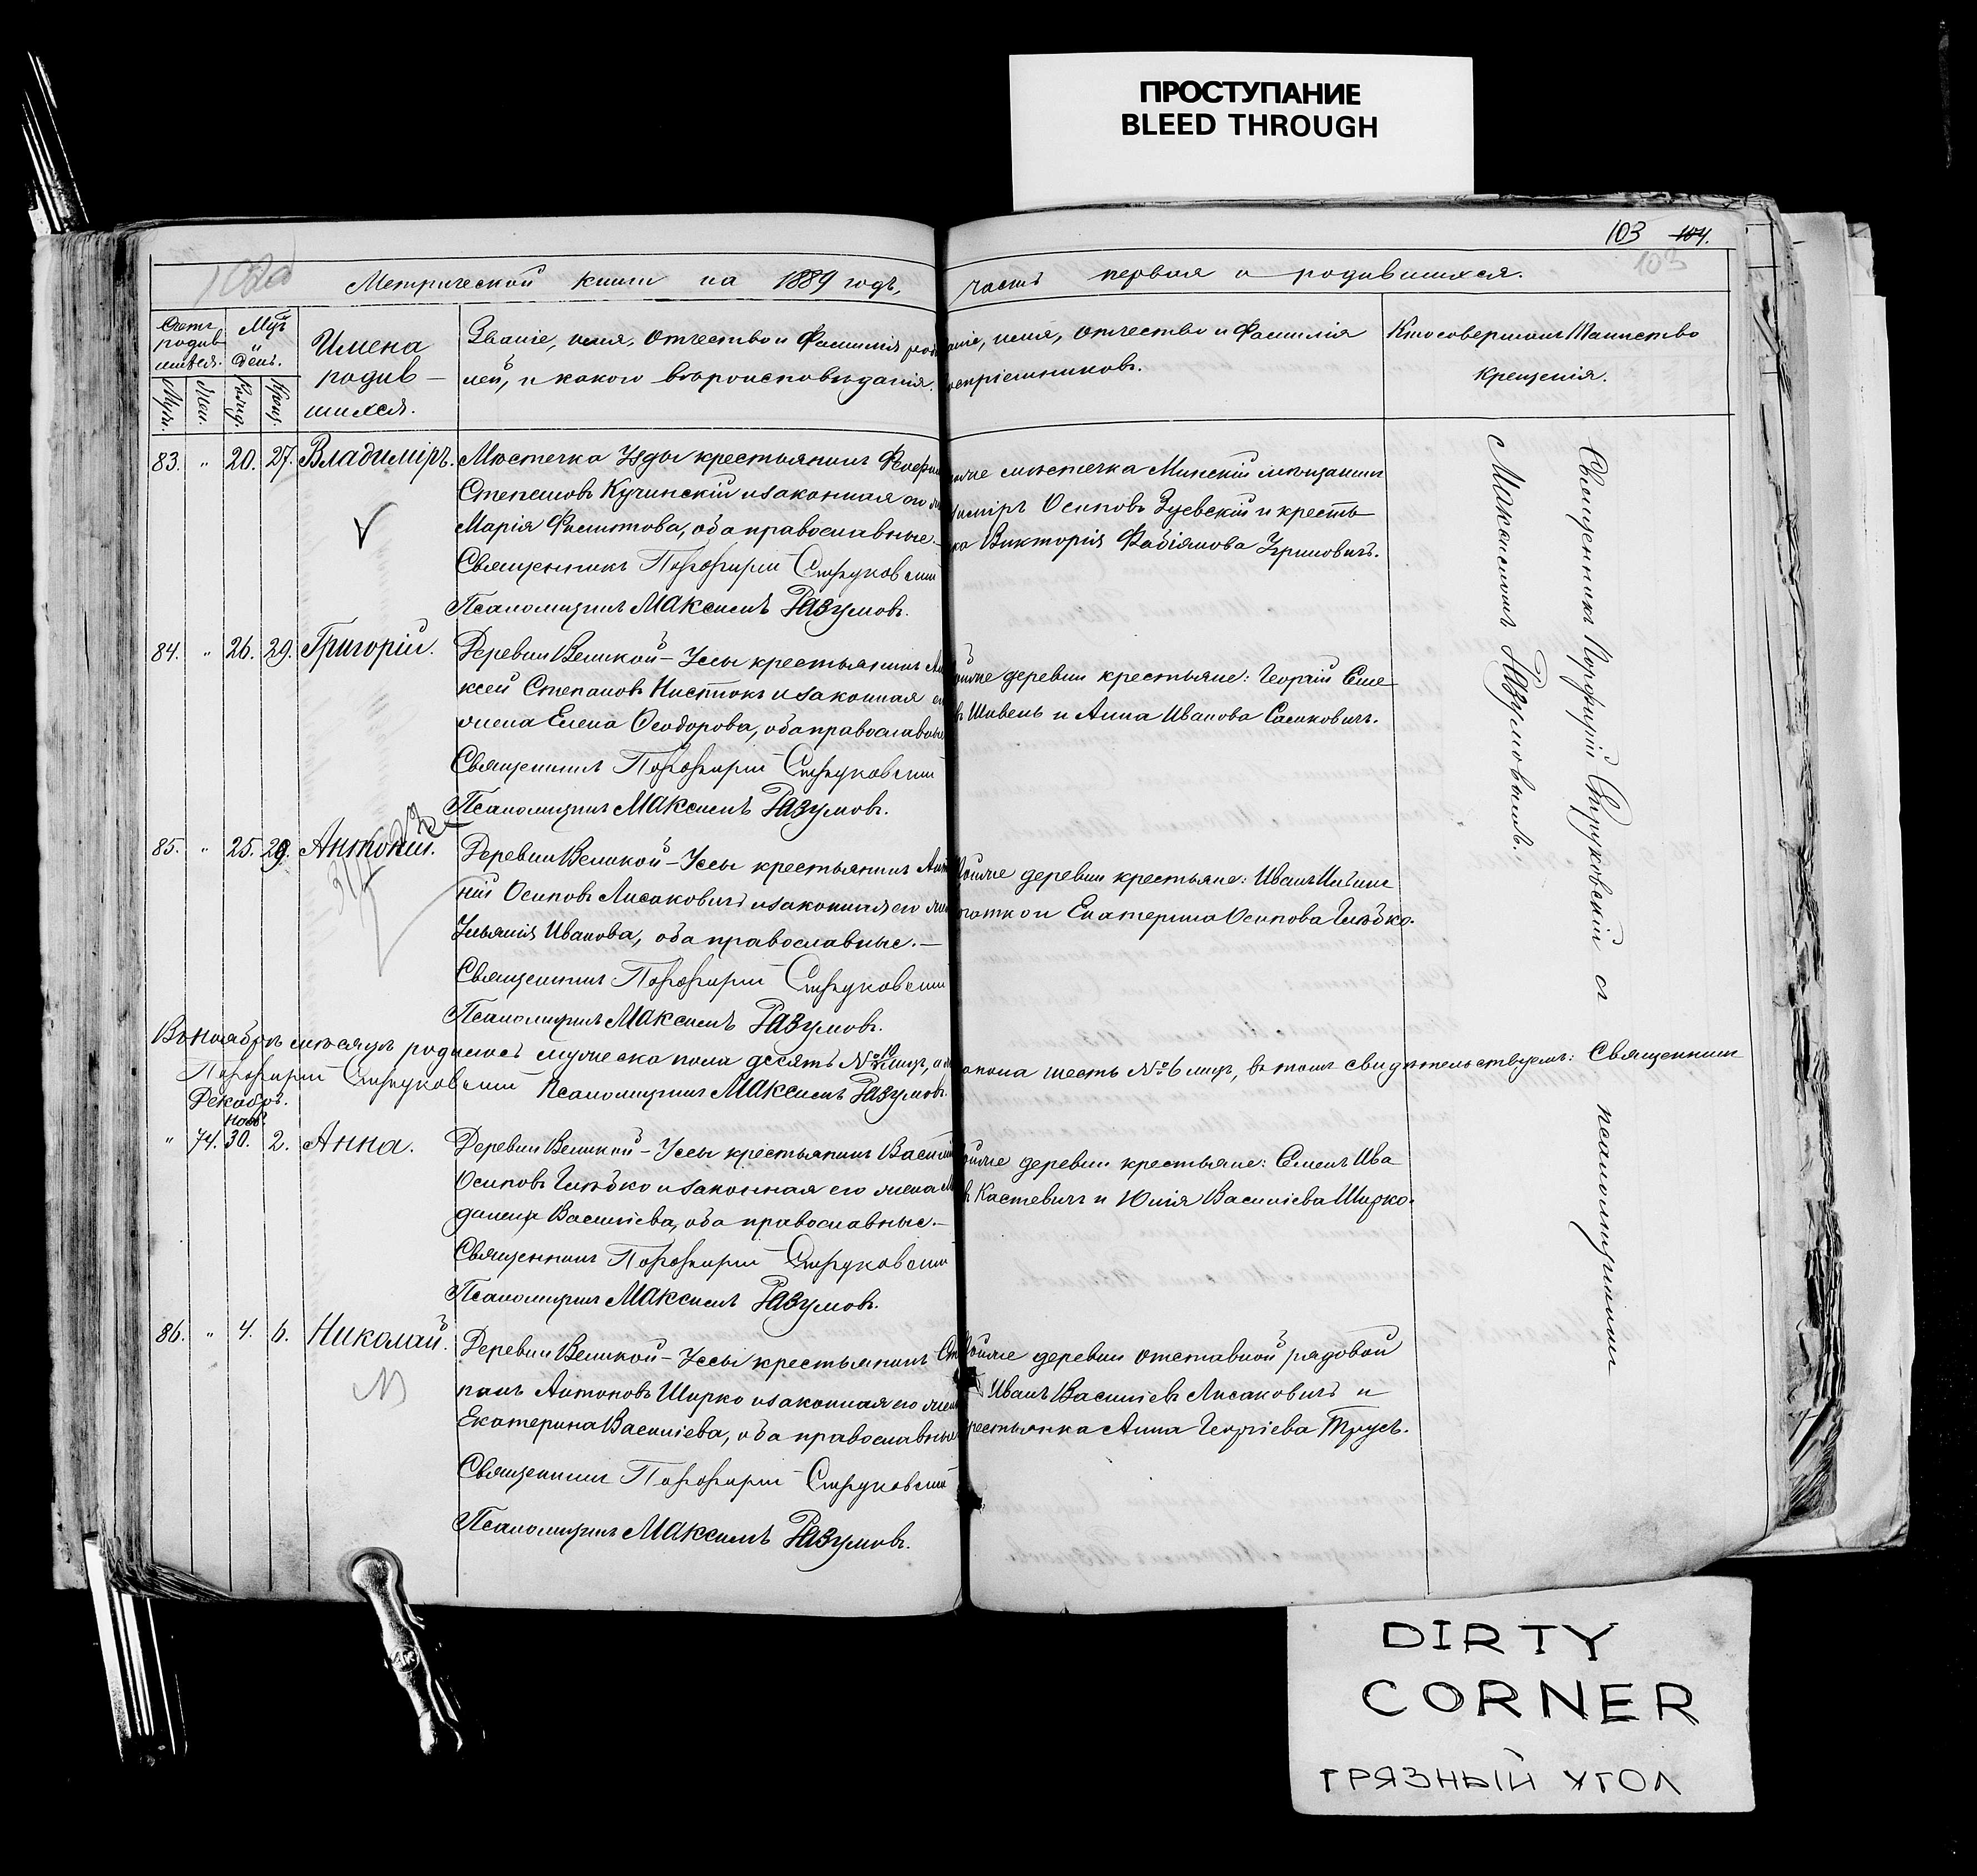 ПРОСТУПАНИЕ
BLEED THROUGH
103 104.
103
Метрической книги на 1889 годъ, часть первая о родившихся.
Счетъ родив-шихся.
Муж.
Жен.
Мцъ и день.
Рожд.
Крещ.
Имена
родив-
шихся.
Званіе, имя, отчество и фамилія роди
лей, и какого вѣроисповѣданія.
аніе, имя, отчество и фамилія
воспріемниковъ.
Кто совершалъ таинство
крещенія.
83. " 20. 27. Владиміръ.
Мѣстечка Узды крестьянинъ
Степановъ Кучинскій и законная его
Марія Филиппова, оба православные.–
Священникъ Порфирій Струковскій
Псаломщикъ Максимъ Разумовъ.
мѣстечка Минскій мѣщанинъ
Осиповъ Зуевскій и кресть-
ка Викторія Фабіянова
84. " 26. 29. Григорій.
Деревни Великой-Уссы крестьянинъ Але
ксей Степановъ и законная его
жена Елена Ѳеодорова, оба православные
Священникъ Порфирій Струковскій
Псаломщикъ Максимъ Разумовъ.
деревни крестьяне: Георгій Семе
въ Шивень и Анна Иванова Саковичъ.
85. " 25. 29. Антоній.
Деревни Великой-Уссы крестьянинъ Анто
ній Осиповъ Лисаковичъ и законная его
Ульянія Иванова, оба православные.–
Священникъ Порфирій Струковскій
Псаломщикъ Максимъ Разумовъ.
деревни крестьяне: Иванъ Ильинъ
Екатерина Осипова Глѣбко.
Въ Ноябрѣ мѣсяцѣ родилось мужеска пола десять №10 лицъ, а женска пола шесть №6 лицъ, въ томъ свидѣтельствуемъ: Священникъ
Порфирій Струковскій Псаломщикъ Максимъ Разумовъ.
Декабрь.
Нояб.
" 74. 30. 2. Анна.
Деревни Великой-Уссы крестьянинъ Василій
Осиповъ Глѣбко и законная его жена Маг
далина Василіева, оба православные.–
Священникъ Порфирій Струковскій
Псаломщикъ Максимъ Разумовъ.
деревни крестьяне: Семенъ Ива
въ Костевичъ и Юлія Василіева Ширко.
86. " 4. 6. Николай.
Деревни Великой-Уссы крестьянинъ Сте
панъ Антоновъ Ширко и законная его жена
Екатерина Василіева, оба православные
Священникъ Порфирій Струковскій
Псаломщикъ Максимъ Разумовъ.
деревни отставной рядовой
Иванъ Василіевъ Лисаковичъ и
крестьянка Анна Георгіева Трусъ.
Священникъ Порфирій Струковскій съ псаломщикомъ
Максимомъ Разумовымъ.
DIRTY
CORNER
ГРЯЗНЫЙ УГОЛ